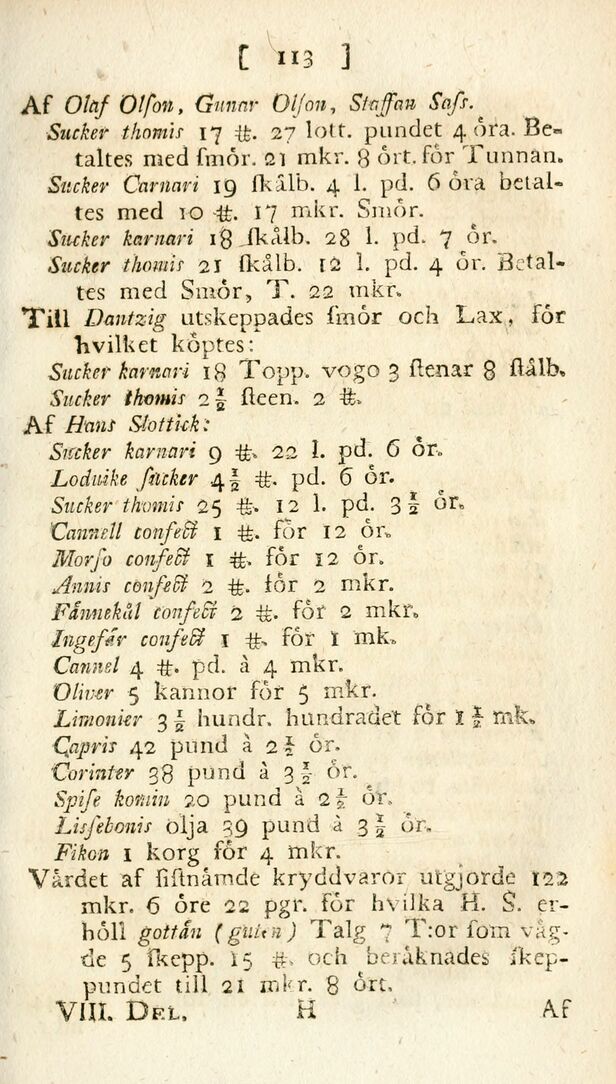 [ 113 ]
Af Olaf Olſon, Gunar Olſon, Staffan Saſs.
Sucker thomis 17 ⌗. 27 lott. pundet 4 öra. Be-
taltes med ſmör. 21 mkr. 8 ört. för Tunnan.
Sucker Carnari 19 ſkålb. 4 l. pd. 6 öra betal-
tes med 10 ⌗. 17 mkr. Smör.
Sucker karnari 18 ſkålb. 28 l. pd. 7 ör.
Sucker thomis 21 ſkålb. 12 l. pd. 4 ör. Betal-
tes med Smör, T. 22 mkr.
Till Dantzig utskeppades ſmör och Lax, för
hvilket köptes:
Sucker karnari 18 Topp. vogo 3 ſtenar 8 ſtålb.
Sucker thomis 2½ ſteen. 2 ⌗.
Af Hans Slottick:
Sucker karnari 9 ⌗. 22 l. pd. 6 ör.
Loduike ſucker 4½ ⌗. pd. 6 ör.
Sucker thomis 25 ⌗. 12 l. pd. 3½ ör.
Cannell confect 1 ⌗. för 12 ör.
Morſo confect 1 ⌗. för 12 ör.
Annis confect 2 ⌗. för 2 mkr.
Fånnekål confect 2 ⌗. för 2 mkr.
Ingefär confect 1 ⌗. för 1 mk.
Cannel 4 ⌗. pd. à 4 mkr.
Oliver 5 kannor för 5 mkr.
Limonier 3½ hundr. hundradet för 1½ mk.
Capris 42 pund à 2½ ör.
Corinter 38 pund à 3½ ör.
Spiſe komin 20 pund à 2½ ör.
Lisſebonis olja 39 pund à 3½ ör.
Fikon 1 korg för 4 mkr.
Värdet af ſiſtnämde kryddvaror utgjorde 122
mkr. 6 öre 22 pgr. för hvilka H. S. er-
höll gottån (guten) Talg 7 T:or ſom våg-
de 5 ſkepp. 15 ⌗. och beräknades ſkep-
pundet till 21 mkr. 8 ört.
VIII. DEL. H Af